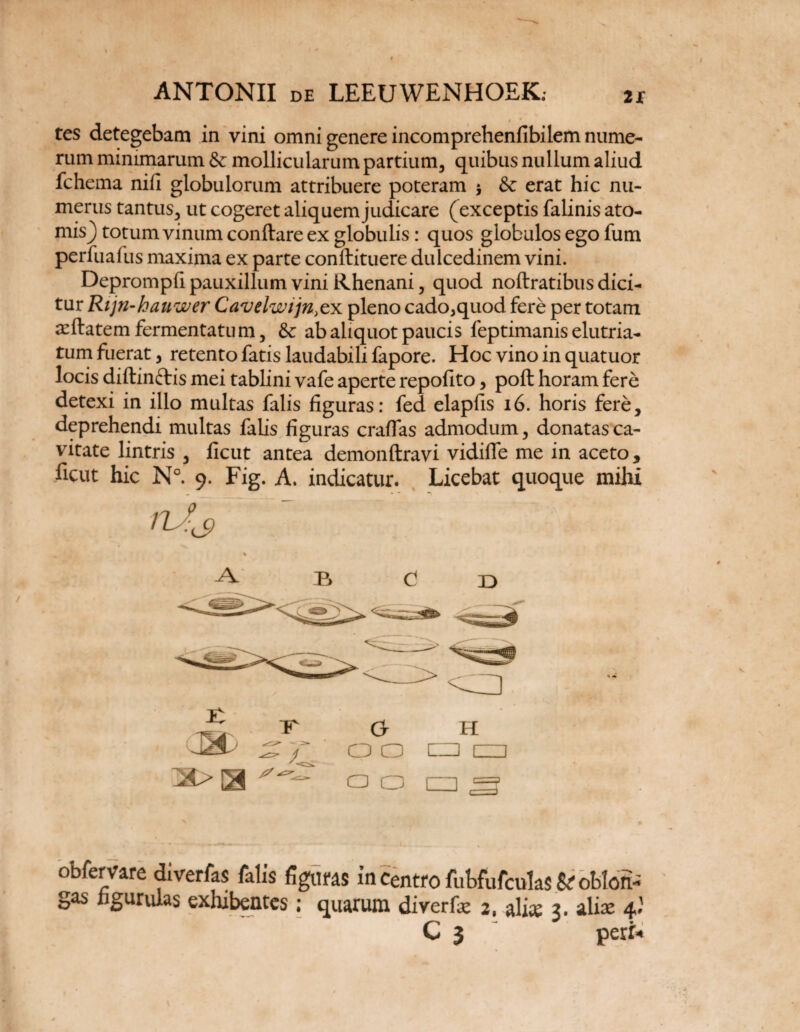 ANTONII DE LEEUWENHOEK. 21
tes detegebam in vini omni genere incomprehenſibilem nume-
rum minimarum & mollicularum partium, quibus nullum aliud
ſchema niſi globulorum attribuere poteram ; & erat hic nu-
merus tantus, ut cogeret aliquem judicare (exceptis ſalinis ato-
mis) totum vinum conſtare ex globulis : quos globulos ego ſum
perſuaſus maxima ex parte conſtituere dulcedinem vini.
Deprompſi pauxillum vini Rhenani, quod noſtratibus dici-
tur Rijn-hauwer Cavelwijn, ex pleno cado, quod ferè per totam
æſtatem fermentatum, & ab aliquot paucis ſeptimanis elutria-
tum fuerat, retento ſatis laudabili ſapore. Hoc vino in quatuor
locis diſtinctis mei tablini vaſe aperte repoſito, poſt horam ferè
detexi in illo multas ſalis figuras: ſed elapſis 16. horis ferè,
deprehendi multas ſalis figuras craſſas admodum, donatas ca-
vitate lintris , ſicut antea demonſtravi vidiſſe me in aceto,
ſicut hic N°. 9. Fig. A. indicatur. Licebat quoque mihi
N.º 9
A B C D
E F G H
obſervare diverſas ſalis figuras in centro ſubfuſculas & oblon-
gas figurulas exhibentes : quarum diverſæ 2. aliæ 3. aliæ 4.
C 3 peri-